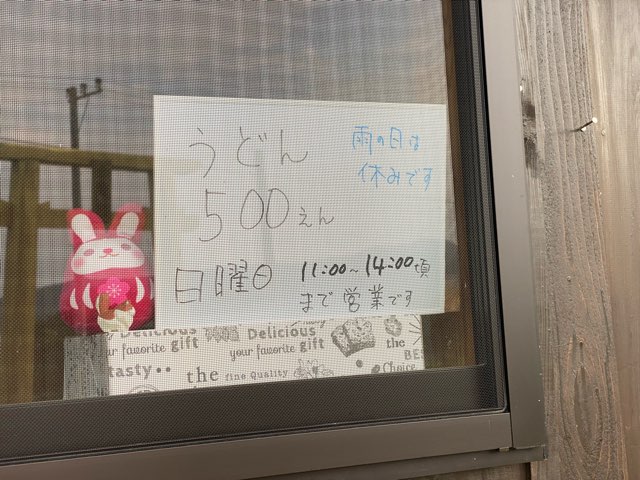 うどん
500えん
雨の日は
休みです
日曜日
11:00~14:00頃
まで営業です
Delicious
Delicious
your favorite gift
your favorite gift
the
BES
tasty••
the fine Quality
Choice